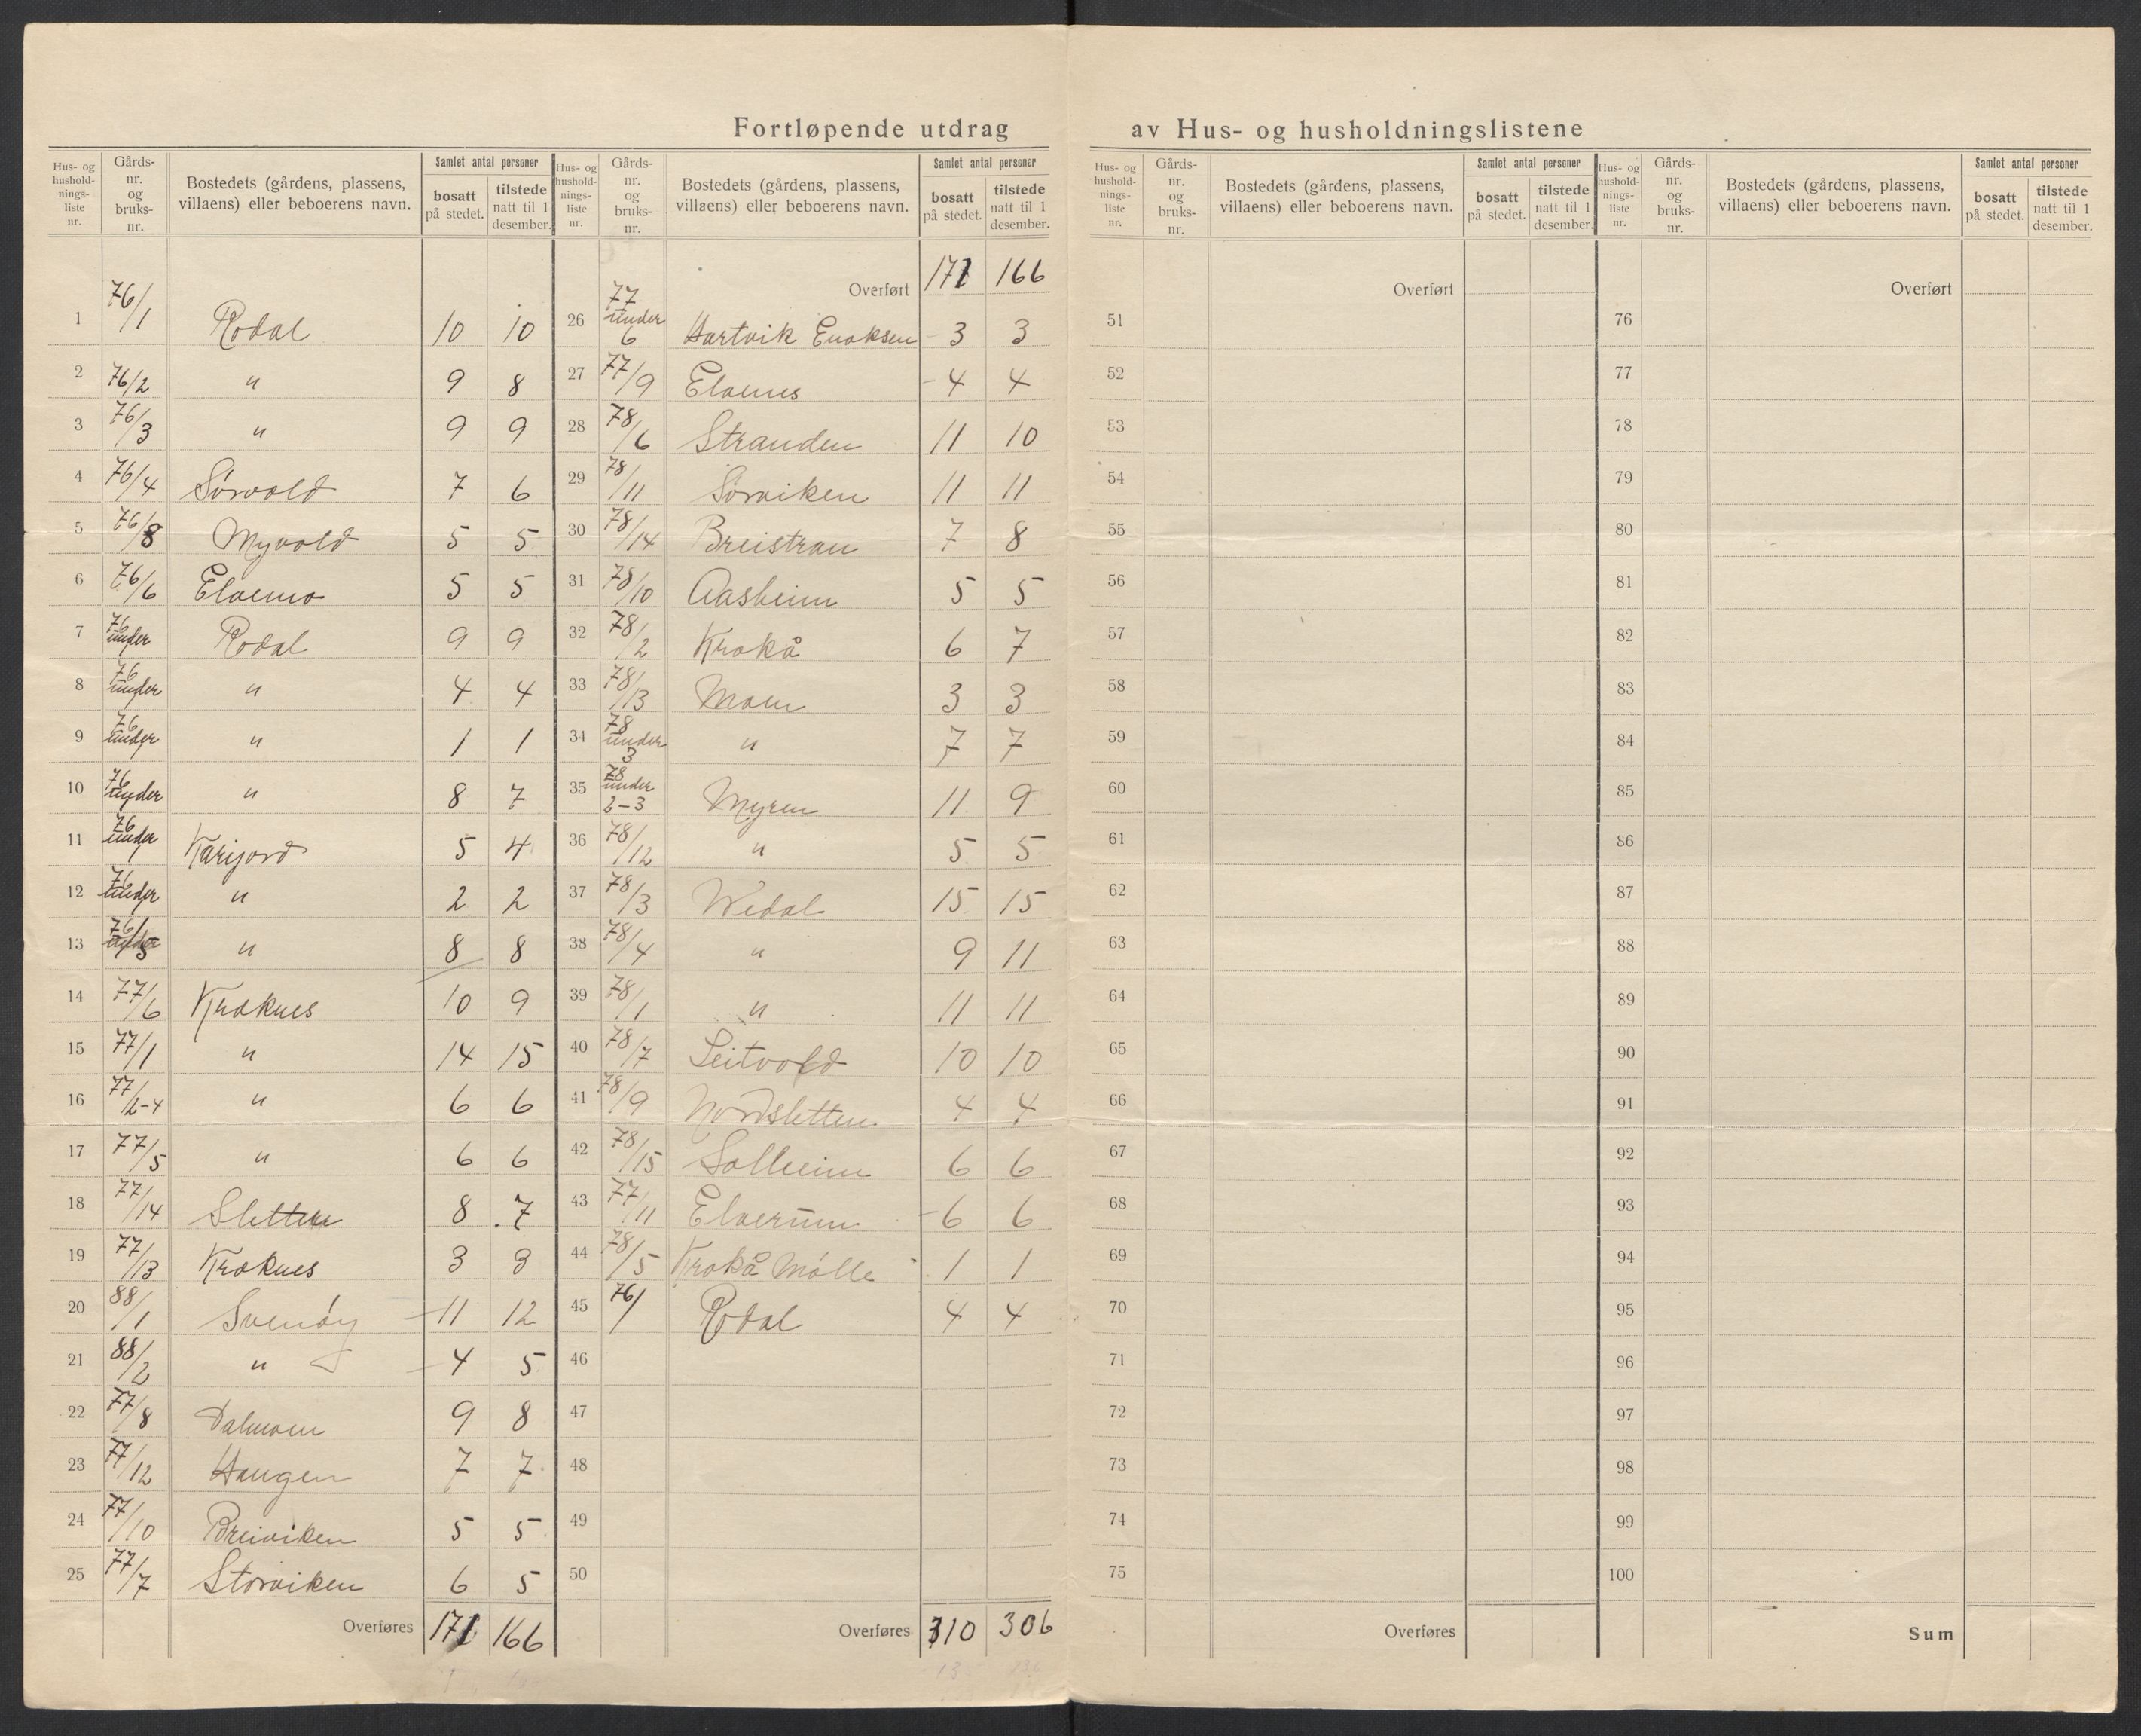 Fortløpende utdrag av Hus- og husholdningslistene
Hus- og hushold-nings-liste nr. Gårds-nr. og bruks-nr. Bostedets (gårdens, plassens, villaens) eller beboerens navn. Samlet antal personer bosatt på stedet. tilstede natt til 1 desember.
1 76/1 Rodal 10 10
2 76/2 " 9 8
3 76/3 " 9 9
4 76/4 Sørvold 7 6
5 76/8 Myvold 5 5
6 76/6 Elvemo 5 5
7 76 under Rodal 9 9
8 76 under " 4 4
9 76 under " 1 1
10 76 under " 8 7
11 76 under Karijord 5 4
12 76 under " 2 2
13 76/5 " 8 8
14 77/6 Kroknes 10 9
15 77/1 " 14 15
16 77/2-4 " 6 6
17 77/5 " 6 6
18 77/14 Sletten 8 7
19 77/13 Kroknes 3 3
20 88/1 Svenøy 11 12
21 88/2 " 4 5
22 77/8 Dalmoen 9 8
23 77/12 Haugen 7 7
24 77/10 Breiviken 5 5
25 77/7 Storviken 6 5
Overføres 171 166
Hus- og hushold-nings-liste nr. Gårds-nr. og bruks-nr. Bostedets (gårdens, plassens, villaens) eller beboerens navn. Samlet antal personer bosatt på stedet. tilstede natt til 1 desember.
Overført 171 166
26 77 under 6 Hartvik Enoksen 3 3
27 77/9 Elvenes 4 4
28 78/6 Stranden 11 10
29 78/11 Sørviken 11 11
30 78/14 Breistran 7 8
31 78/10 Aasheim 5 5
32 78/2 Krokå 6 7
33 78/13 Moen 3 3
34 78 under 3 " 7 7
35 78 under 2-3 Myren 11 9
36 78/12 " 5 5
37 78/3 Wedal 15 15
38 78/4 " 9 11
39 78/1 " 11 11
40 78/7 Leitvold 10 10
41 78/9 Nordsletten 4 4
42 78/15 Solheim 6 6
43 77/11 Elverum 6 6
44 78/5 Krokå Mølle 1 1
45 76/ Rodal 4 4
46
47
48
49
50
Overføres 310 306
Hus- og hushold-nings-liste nr. Gårds-nr. og bruks-nr. Bostedets (gårdens, plassens, villaens) eller beboerens navn. Samlet antal personer bosatt på stedet. tilstede natt til 1 desember.
Overført
51
52
53
54
55
56
57
58
59
60
61
62
63
64
65
66
67
68
69
70
71
72
73
74
75
Overføres
Hus- og hushold-nings-liste nr. Gårds-nr. og bruks-nr. Bostedets (gårdens, plassens, villaens) eller beboerens navn. Samlet antal personer bosatt på stedet. tilstede natt til 1 desember.
Overført
76
77
78
79
80
81
82
83
84
85
86
87
88
89
90
91
92
93
94
95
96
97
98
99
100
Sum